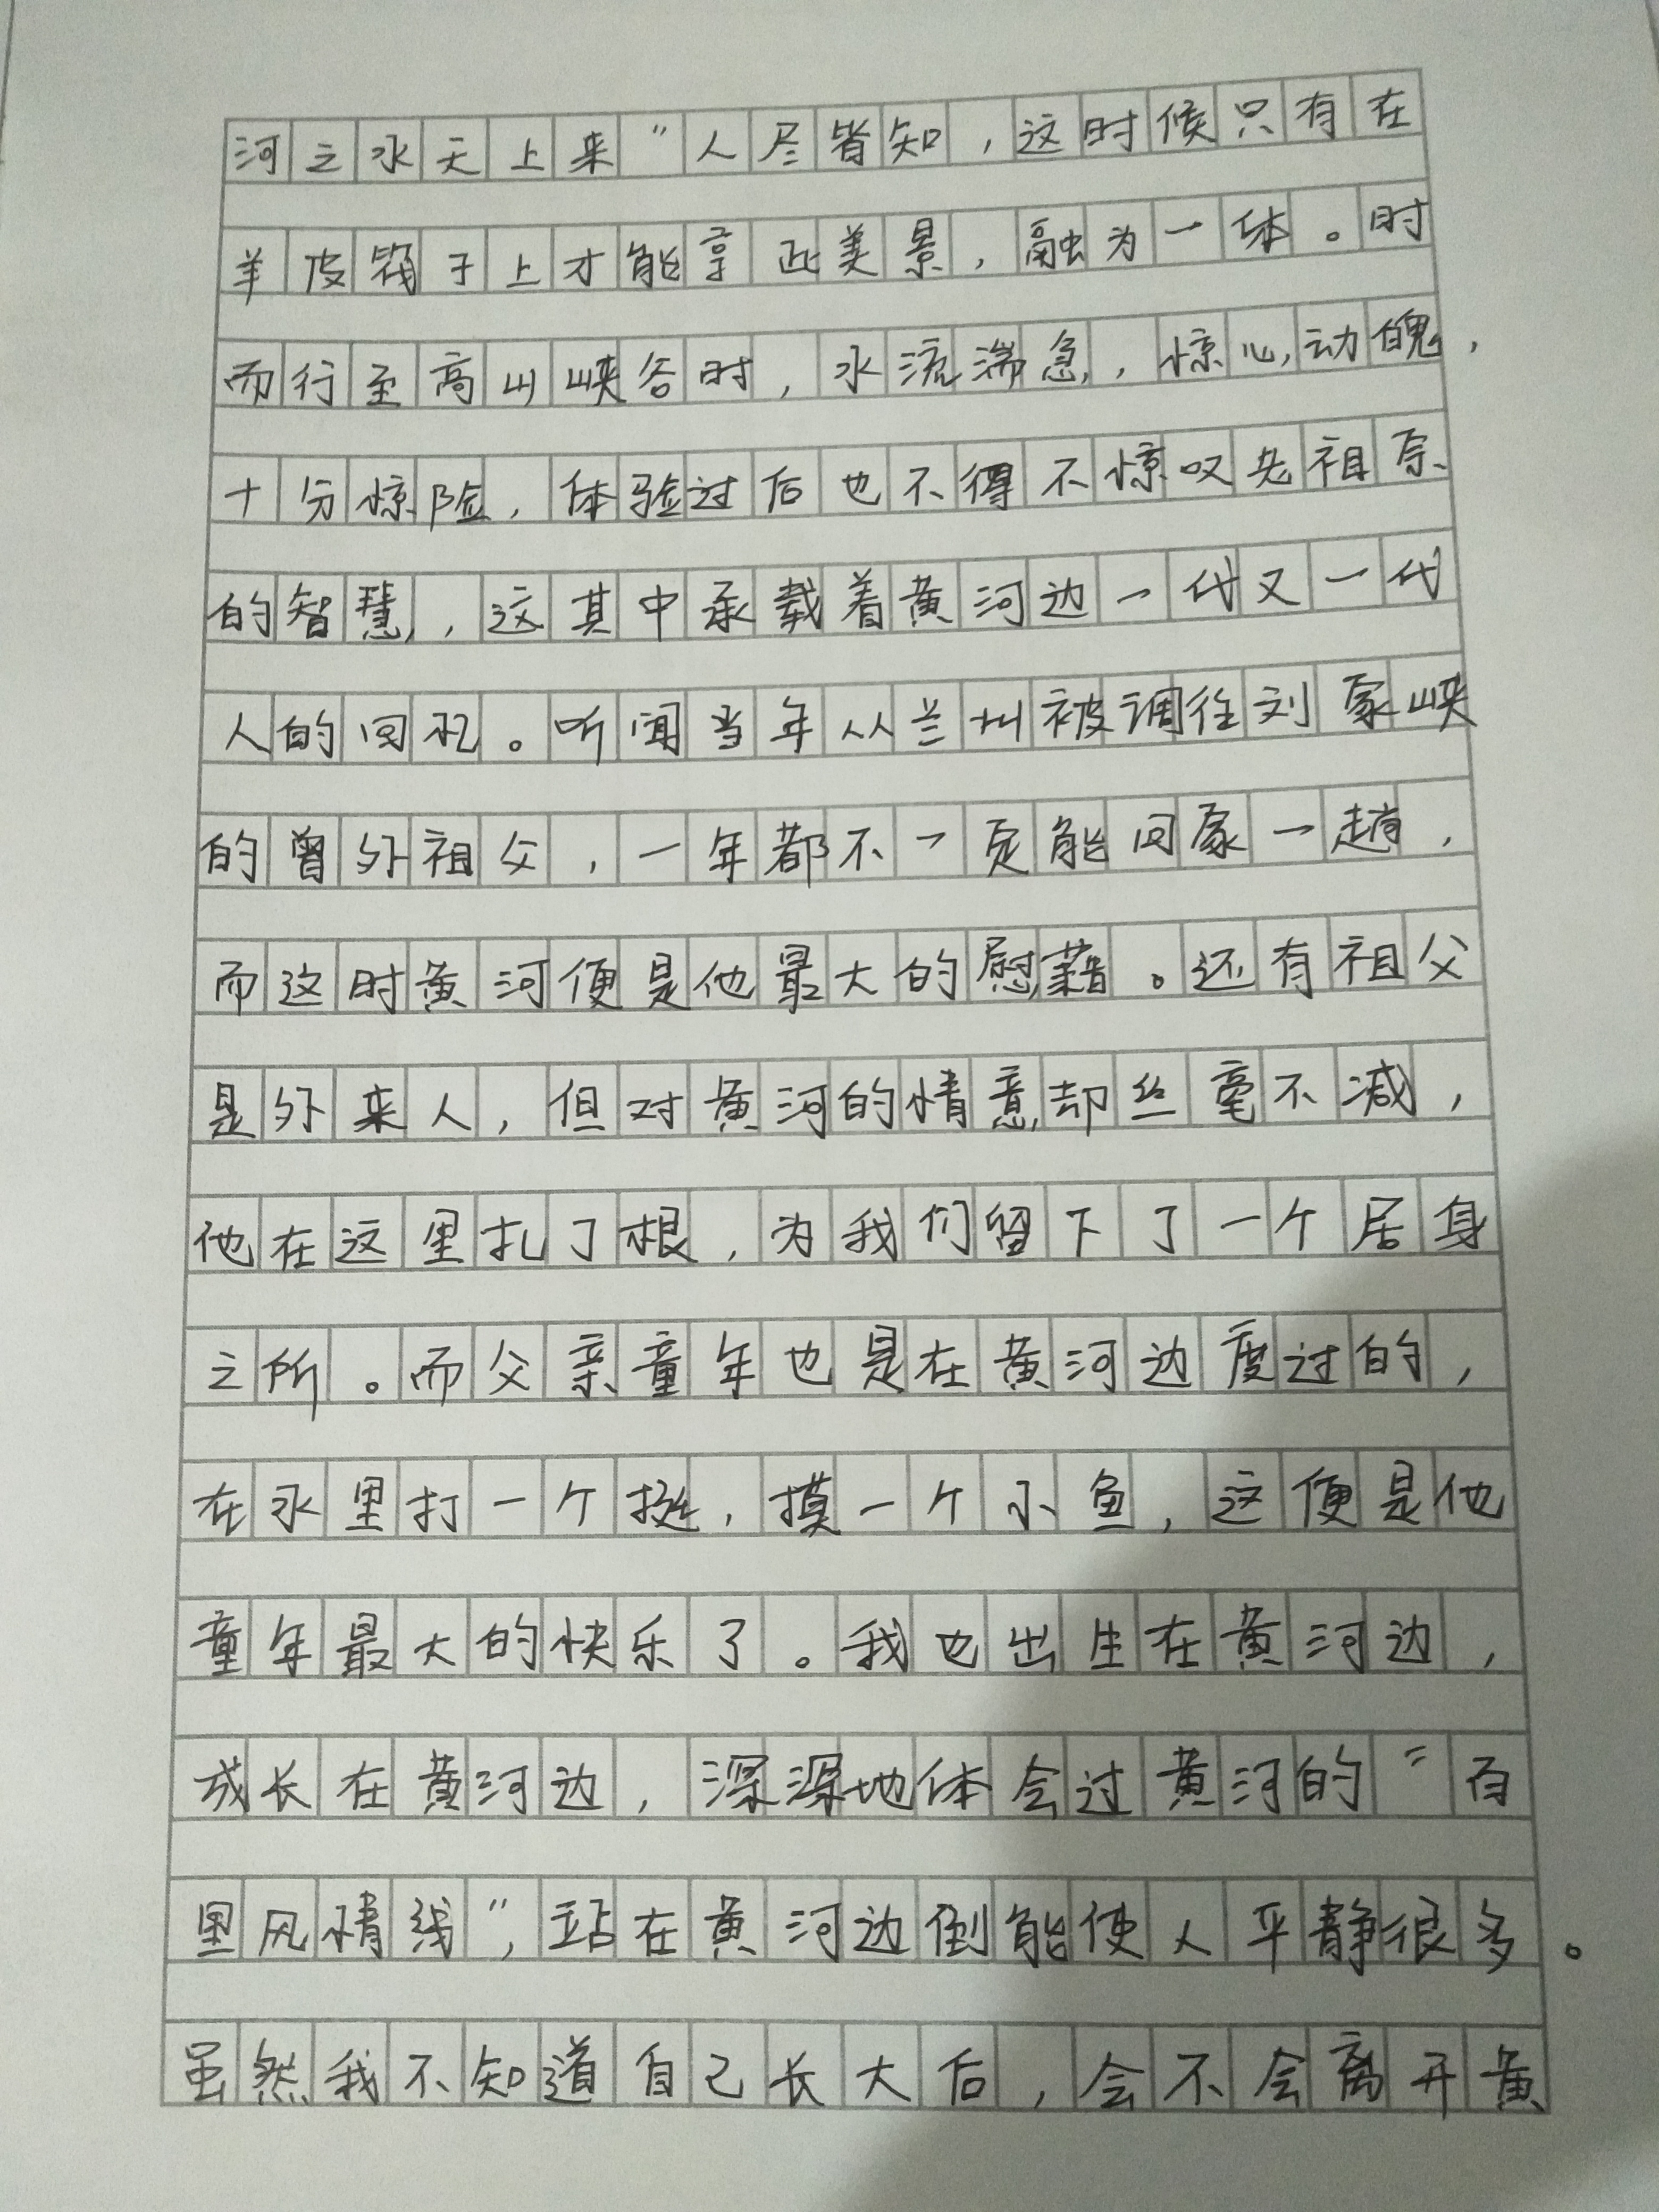 河之水天上来”人尽皆知，这时候只有在
羊皮筏子上才能享此美景，融为一体。时
而行至高山峡谷时，水流湍急，惊心动魄，
十分惊险，体验过后也不得不惊叹先祖
的智慧，这其中承载着黄河边一代又一代
人的回忆。听闻当年从兰州被调往刘家峡
的曾外祖父，一年都不一定能回家一趟，
而这时黄河便是他最大的慰藉。还有祖父
是外来人，但对黄河的情意却丝毫不减，
他在这里扎了根，为我们留下了一个居身
之所。而父亲童年也是在黄河边度过的，
在水里打一个挺，摸一个小鱼，这便是他
童年最大的快乐了。我也出生在黄河边，
成长在黄河边，深深地体会过黄河的“百
里风情线”，站在黄河边倒能使人平静很多。
虽然我不知道自己长大后，会不会离开黄